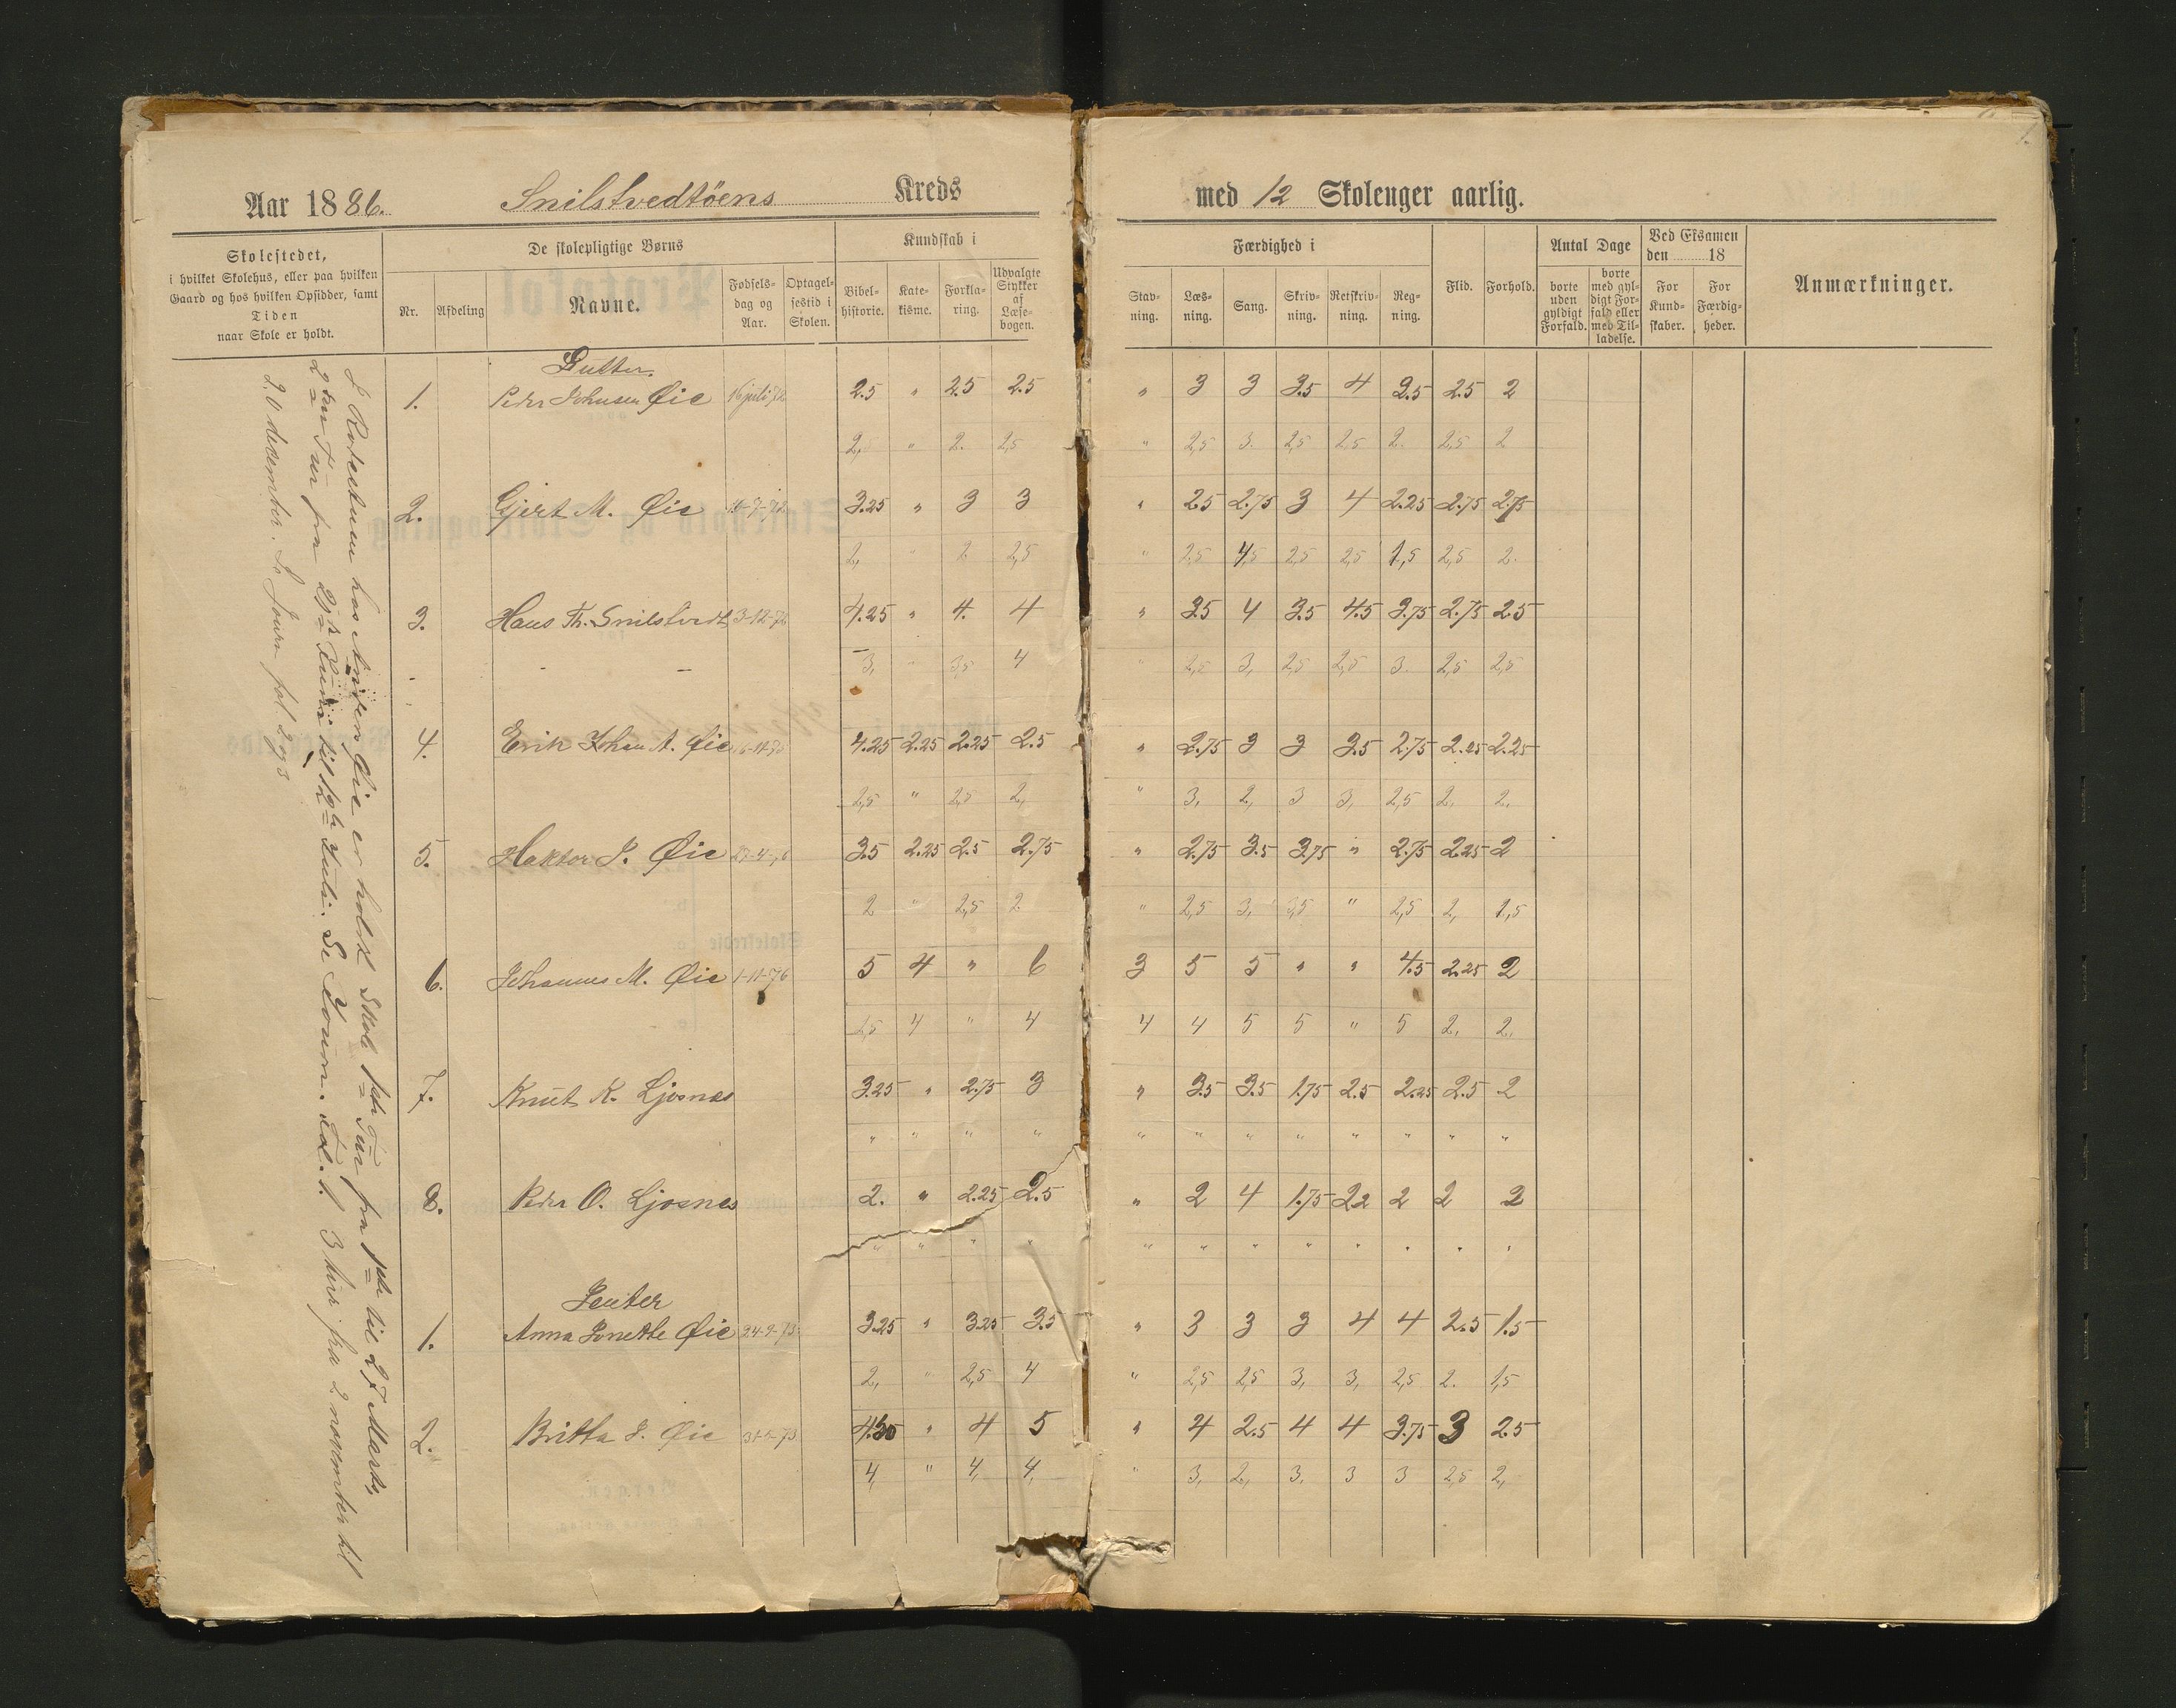 Aar 1886. Snilstvedtöens Kreds med 12 Skoleuger aarlig.
Skolestedet, i hvilket Skolehus, eller paa hvilken Gaard og hos hvilken Opsidder, samt Tiden naar Skole er holdt.
De skolepligtige Børns
Nr. Afdeling Navne. Fødsels-dag og Aar. Optagel-sestid i Skolen.
Kundskab i
Bibel-historie. Kate-kisme. Forkla-ring. Udvalgte Stykker af Læse-bogen.
Færdighed i
Stav-ning. Læs-ning. Sang. Skriv-ning. Retskriv-ning. Reg-ning.
Flid. Forhold.
Antal Dage
borte uden gyldigt Forfald. borte med gyl-digt For-fald eller med Til-ladelse.
Ved Eksamen den 18
For Kund-skaber. For Færdig-heder.
Anmærkninger.
hos Øie er holdt Skole 1ste Tur fra 1ste til 27 Marts,
2den Tur fra til Juli. Se Journ. 3 fra 2 november til
20 desember. Se Journ fol 2 og 3
Gutter.
1. Peder Johnsen Øie 16 juli 72 2.5 " 2.5 2.5 " 3 3 3.5 4 2.5 2.5 2
2, " 2. 2,5 " 2,5 3. 2,5 2,5 2. 2,5 2
2. Gjert M. Øie 3.25 " 3 3 " 2.5 2.75 3 4 2.25 2.75 2.75
2, " 2 2,5 " 2,5 4,5 2,5 2,5 1,5 2,5 2.
3. Hans Th. Snilstvedt 3-12-72 4.25 " 4. 4 " 3.5 4 3.5 4.5 3.75 2.75 2.5
3, " 3,5 4 " 2,5 3, 2,5 2,5 3. 2,5 2,5
4. Erik Johan A. Øie 4.25 2.25 2.25 2.5 " 2.75 3 3 3.5 2.75 2.25 2.25
2,5 " 2,5 2, " 3, 2, 3 3, 2,5 2, 2,
5. Haktor J. Øie 3.5 2.25 2.5 2.75 " 2.75 3.5 3.75 " 2.75 2.25 2
2 " 2,5 2 " 2,5 3, 3,5 " 2,5 2, 1,5
6. Johannes M. Øie 1-11-76 5 4 " 6 3 5 5 " " 4.5 2.25 2
2,5 4 " 4 4 4 5 5 " 5 2, 2,
7. Knut K. Ljosnes 3.25 " 2.75 3 " 3.5 3.5 1.75 2.5 2.25 2.5 2
" " " " " " " " " " " "
8. Peder O. Ljosnes 2. " 2.25 2.5 " 2 4 1.75 2.2 2 2 2
" " " " " " " " " " " "
Jenter
1. Anna Jonette Øie 24-9-73 3.25 " 3.25 3.5 " 3 3 3 4 4 2.5 1.5
2, " 2,5 4 " 2,5 2,5 3, 3, 2,5 2. 1,5
2. Britta J. Øie 4.50 " 4 5 " 4 2.5 4 4 3.75 3 2.5
4, " 4, 4, " 3, 2, 3, 3 3 2,5 2,